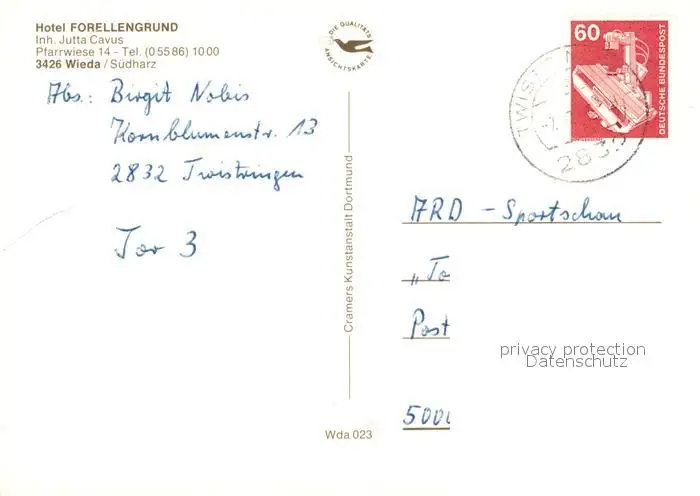 Hotel FORELLENGRUND
Inh. Jutta Cavus
Pfarrwiese 14 - Tel. (0 55 86) 10 00
3426 Wieda / Südharz
Abs.: Birgit Nobis
Kornblumenstr. 13
2832 Twistringen
Tor 3
DIE QUALITÄTS
ANSICHTSKARTE
Cramers Kunstanstalt Dortmund
Wda 023
60
DEUTSCHE BUNDESPOST
TWIST
2832
ARD - Sportschau
„To
Post
privacy protection
Datenschutz
500